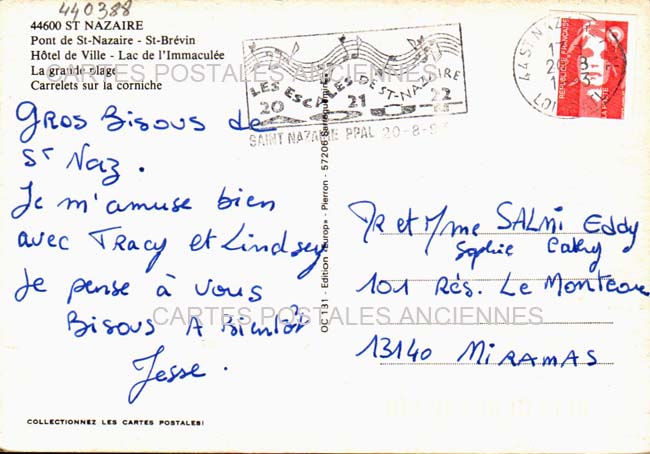 440388
44600 ST NAZAIRE
Pont de St-Nazaire - St-Brévin
Hôtel de Ville - Lac de l'Immaculée
La grande plage
Carrelets sur la corniche
CARTES POSTALES ANCIENNES
LES ESCALES DE ST-NAZAIRE
20 21 22
SAINT NAZAIRE PPAL 20-8-9
44 ST NAZ
REPUBLIQUE FRANÇAISE
LA POSTE
GROS BISOUS de
St NAZ.
Je m'amuse bien
avec TRACY et Lindsey
Je pense à vous
BISOUS A Bientôt
Jesse.
OC 131 - Edition «europ» Pierron - 57206 Sarreguemines
Mr et Mme SALMI Eddy
Sophie Cathy
101 Rés. Le Monteau
CARTES POSTALES ANCIENNES
13140 MIRAMAS
COLLECTIONNEZ LES CARTES POSTALES!